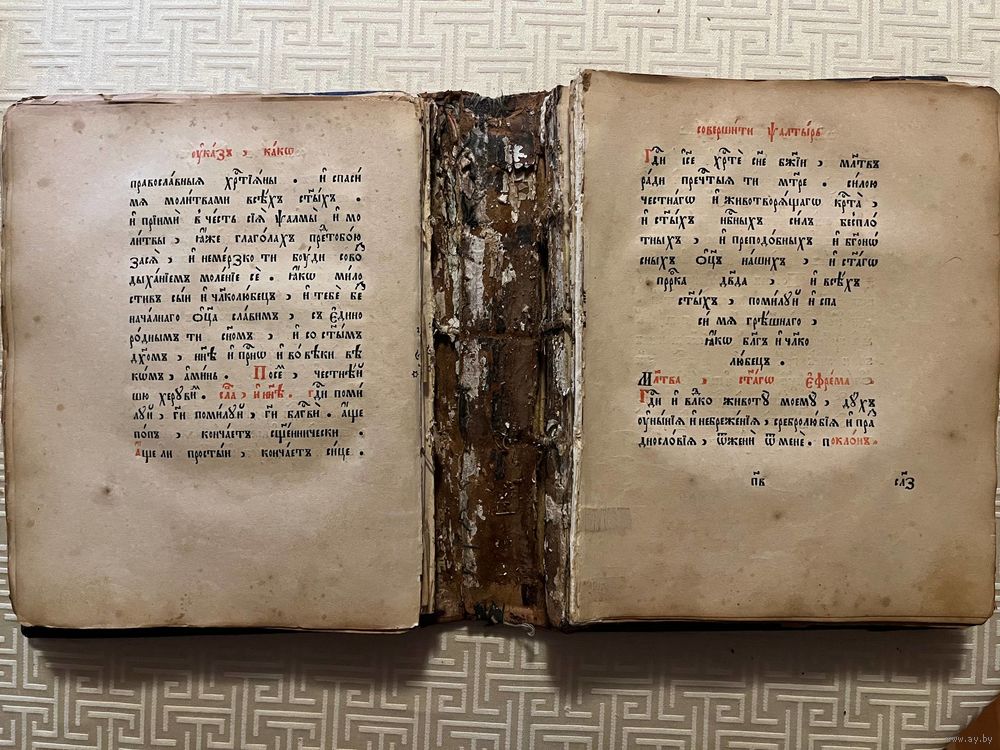 оу҆ка́зъ , ка́кѡ
правосла́вныѧ хрⷭ҇тїѧ́ны . и҆ спаси́
мѧ моли́твами всѣ́хъ ст҃ы́хъ .
и҆ прїимѝ в че́сть сїѧ̑ ѱалмы̀ и҆ мо
ли́твы , ꙗ҆́же глаго́лахъ пред̾ тобо́ю
за сѧ̀ , и҆ не ме́рзко ти бꙋ́ди сово
дыха́нїемъ моле́нїе сѐ . ꙗ҆́кѡ ми́ло
стивъ сы́и и҆ чл҃колю́бецъ , и҆ тебѐ бе
знача́лнаго ѻ҆ц҃а̀ сла́вимъ , съ є҆ди́но
ро́днымъ ти сн҃о́мъ , и҆ со ст҃ы́мъ
дх҃о́мъ , нн҃ѣ и҆ при́снѡ и҆ во вѣ́ки вѣ
ко́мъ , а҆ми́нь . По се́мъ , честнѣ́й
шꙋю херꙋви́мъ . сла́ва , и҆ нн҃ѣ . гдⷭ҇и поми́
лꙋй , гдⷭ҇и поми́лꙋй , гдⷭ҇и блгⷭ҇ви́ . а҆́ще
по́пъ , конча́етъ сщ҃е́ннически .
А҆́ще ли просты́и , конча́етъ си́це .
соверши́ти ѱалты́рь
Гдⷭ҇и і҆с҃е хрⷭ҇тѐ сн҃е бж҃їи , мл҃твъ
ра́ди пречⷭ҇тыѧ ти мт҃ре . си́лою
честна́гѡ и҆ животворѧ́щагѡ крⷭ҇та̀ ,
и҆ ст҃ы́хъ нбⷭ҇ныхъ си́лъ безпло́
тныхъ , и҆ преподо́бныхъ и҆ бг҃оно́
сныхъ ѻ҆ц҃ъ на́шихъ , и҆ ст҃а́гѡ
прⷪ҇рка дв҃да , и҆ всѣ́хъ
ст҃ы́хъ , поми́лꙋй и҆ спа
си́ мѧ грѣ́шнаго ,
ꙗ҆́кѡ бл҃гъ и҆ чл҃ко
лю́бецъ .
Мл҃тва , ст҃а́гѡ є҆фре́ма ,
Гдⷭ҇и и҆ влⷣко животꙋ̀ моемꙋ̀ , дꙋ́хъ
оу҆ны́нїѧ и҆ небреже́нїѧ , сребролю́бїѧ и҆ пра́
днослѡвїѧ , ѿжени́ ѿ менѐ . покло́нъ .
п҃в сл҃з
www.ay.by